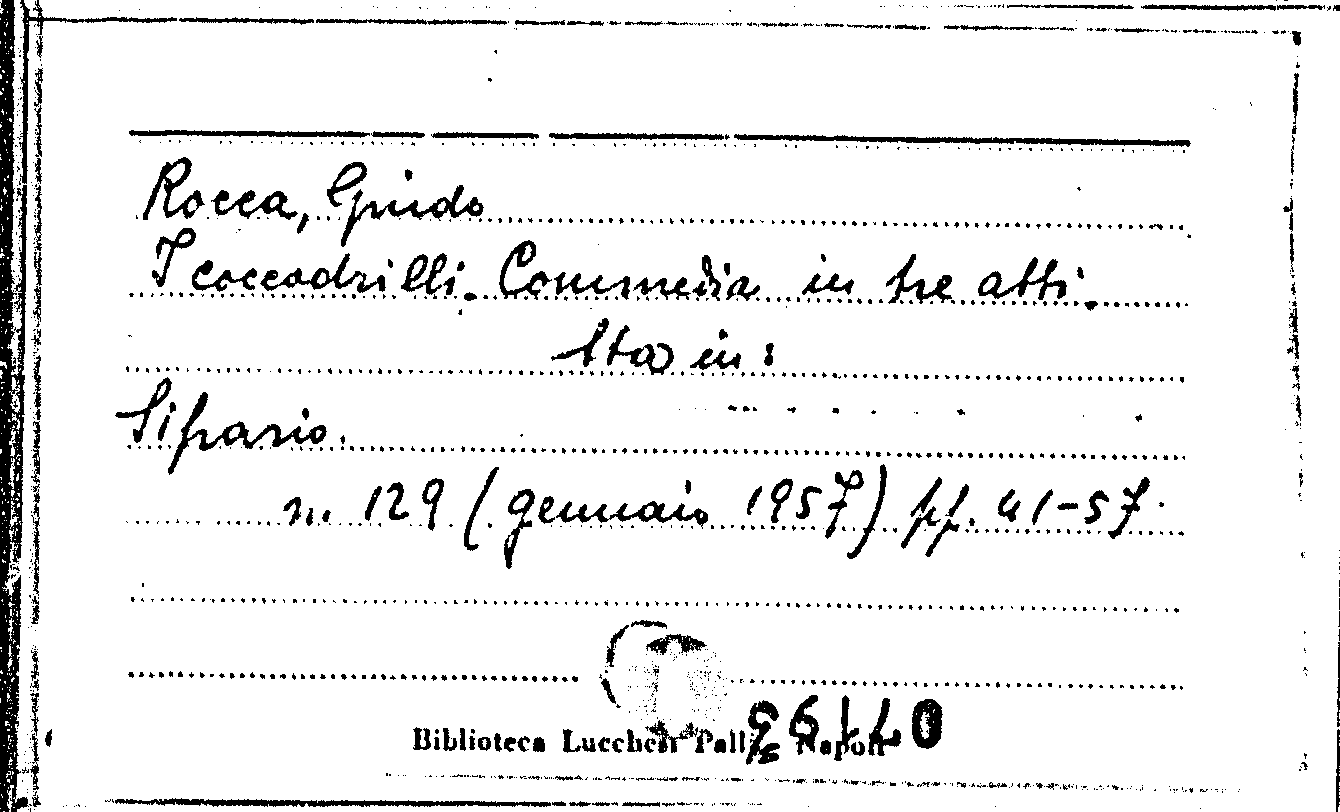 Rocca, Guido
I coccodrilli. Commedia in tre atti.
Sta in:
Sipario.
n. 129 (gennaio 1957) pp. 41-57
Biblioteca Lucchesi Palli - Napoli